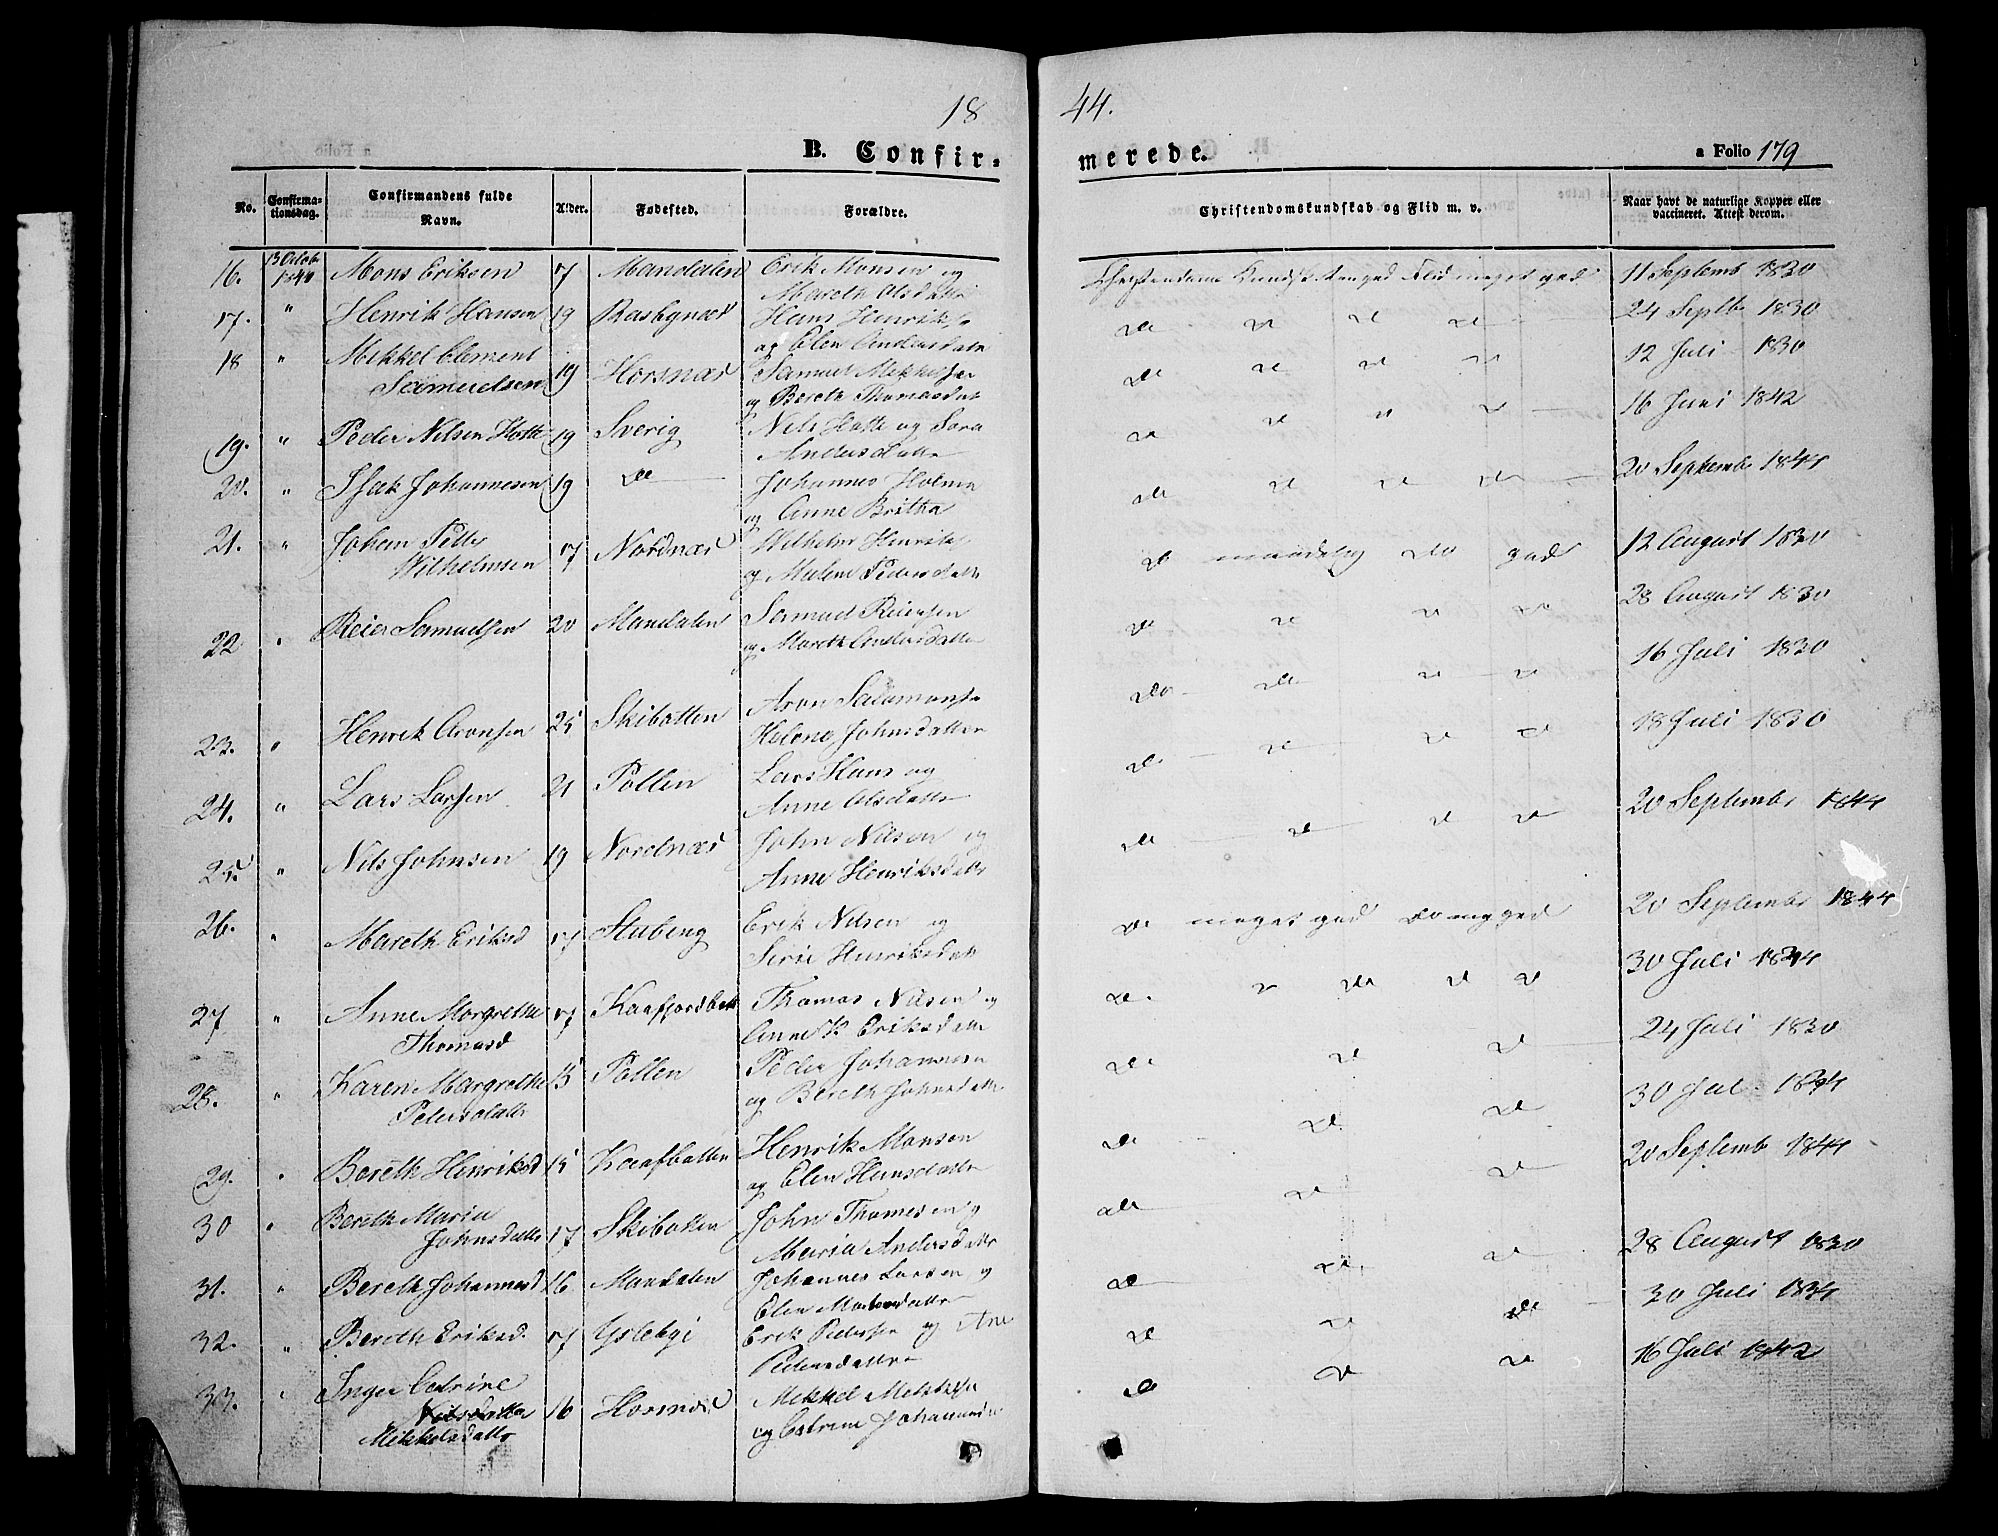 18
44.
B. Confir-
merede.
a Folio 179
No.
Confirma-
tionsdag.
Confirmandens fulde
Navn.
Alder.
Fødested.
Forældre.
Christendomskundskab og Flid m. v.
Naar havt de naturlige Kopper eller
vaccineret. Attest derom.
16. 13 Octob 1844 Mons Eriksen 17 Mandalen Erik Monsen og
Mareth Olsdatt
Flid meget god 11 Septemb 1830
17. " Henrik Hansen 19 Rasbynæs Hans Henriks
og Elen Andersdatt
do do do do 24 Septb 1830
18 " Mikkel Clement
Samuelsen 19 Horsnæs Samuel Mikkelsen
og Bereth Thomasdat
do do do do 12 Juli 1830
19. " Peder Nilsen Hotte 19 Sverig Nils Hotte og Sara
Andersdatter
do do do do 16 Juni 1842
20. " Isak Johannesen 19 do Johannes Holma
og Anne Britha
do do do do 20 Septembr 1844
21. " Johan Petter
Wilhelmsen 17 Nordnæs Wilhelm Henrik
og Malene Pedersdatt
do maadelig do god 12 August 1830
22 " Reier Samuelsen 20 Mandalen Samuel Reiersen
og Mareth Andersdatter
do do do do 28 August 1830
23. " Henrik Aronsen 25 Skibotten Aron Salamons
Helene Johnsdatter
do do do do 16 Juli 1830
24. " Lars Larsen 21 Pollen Lars Hans og
Anne Olsdatter
do do do do 18 Juli 1830
25. " Nils Johnsen 19 Nordnæs John Nilsen og
Anne Henriksdatter
do do do do 20 Septembr 1844
26. " Mareth Eriksd 17 Stubeng Erik Nilsen og
Sirie Henriksdatt
do meget god do meg god 20 Septembr 1844
27 " Anne Margrethe
Thomasd 17 Kaafjordbott Thomas Nilsen og
Anne K Eriksdatter
do do do do do 30 Juli 1834
28. " Karen Margrethe
Pedersdatter 15 Pollen Peder Johannesen
og Bereth Johnsdatter
do do do 24 Juli 1830
29. " Bereth Henriksd 15 Kaafbotten Henrik Monsen
og Elen Hansdatter
do do do 30 Jul 1834
30 " Bereth Maria
Johnsdatter 17 Skibotten John Thomesen og
Maria Andersdatter
do do do 20 Septemb 1844
31. " Bereth Johannesd 16 Mandalen Johannes Larsen og
Elen
do do do 28 August 1830
32. " Bereth Eriksd. 17 Erik Pedersen og Ane
Pedersdatter
do do do 30 Juli 1834
33. " Inger Catrine
Nilsdatter
Mikkelsdatter 16 Horsnæs Mikkel Mikkelse
og Catrine Johannesd
do do do 16 Juli 1842